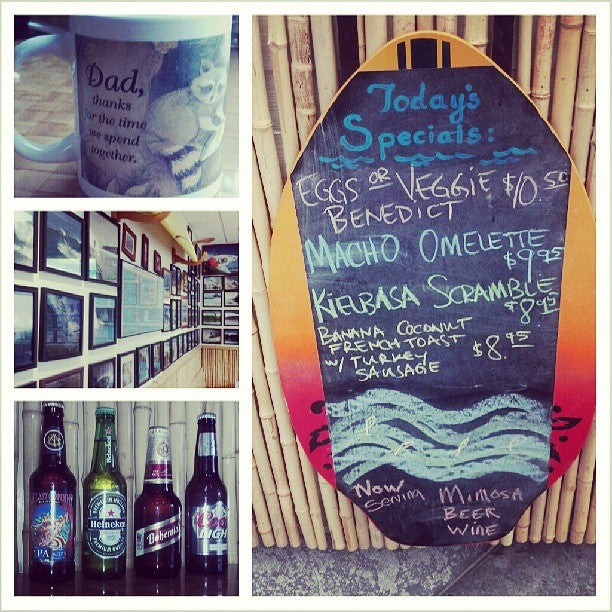 Dad,
thanks
for the time
we spend
together.
Heineken
IPA
Heineken
Bohemia
Coors
LIGHT
Today's
Specials:
EGGS OR VEGGIE $10.50
BENEDICT
MACHO OMELETTE
$9.95
KIELBASA SCRAMBLE
$8.95
BANANA COCONUT
FRENCH TOAST
W/ TURKEY $8.95
SAUSAGE
NOW
Serving
MIMOSA
BEER
WINE